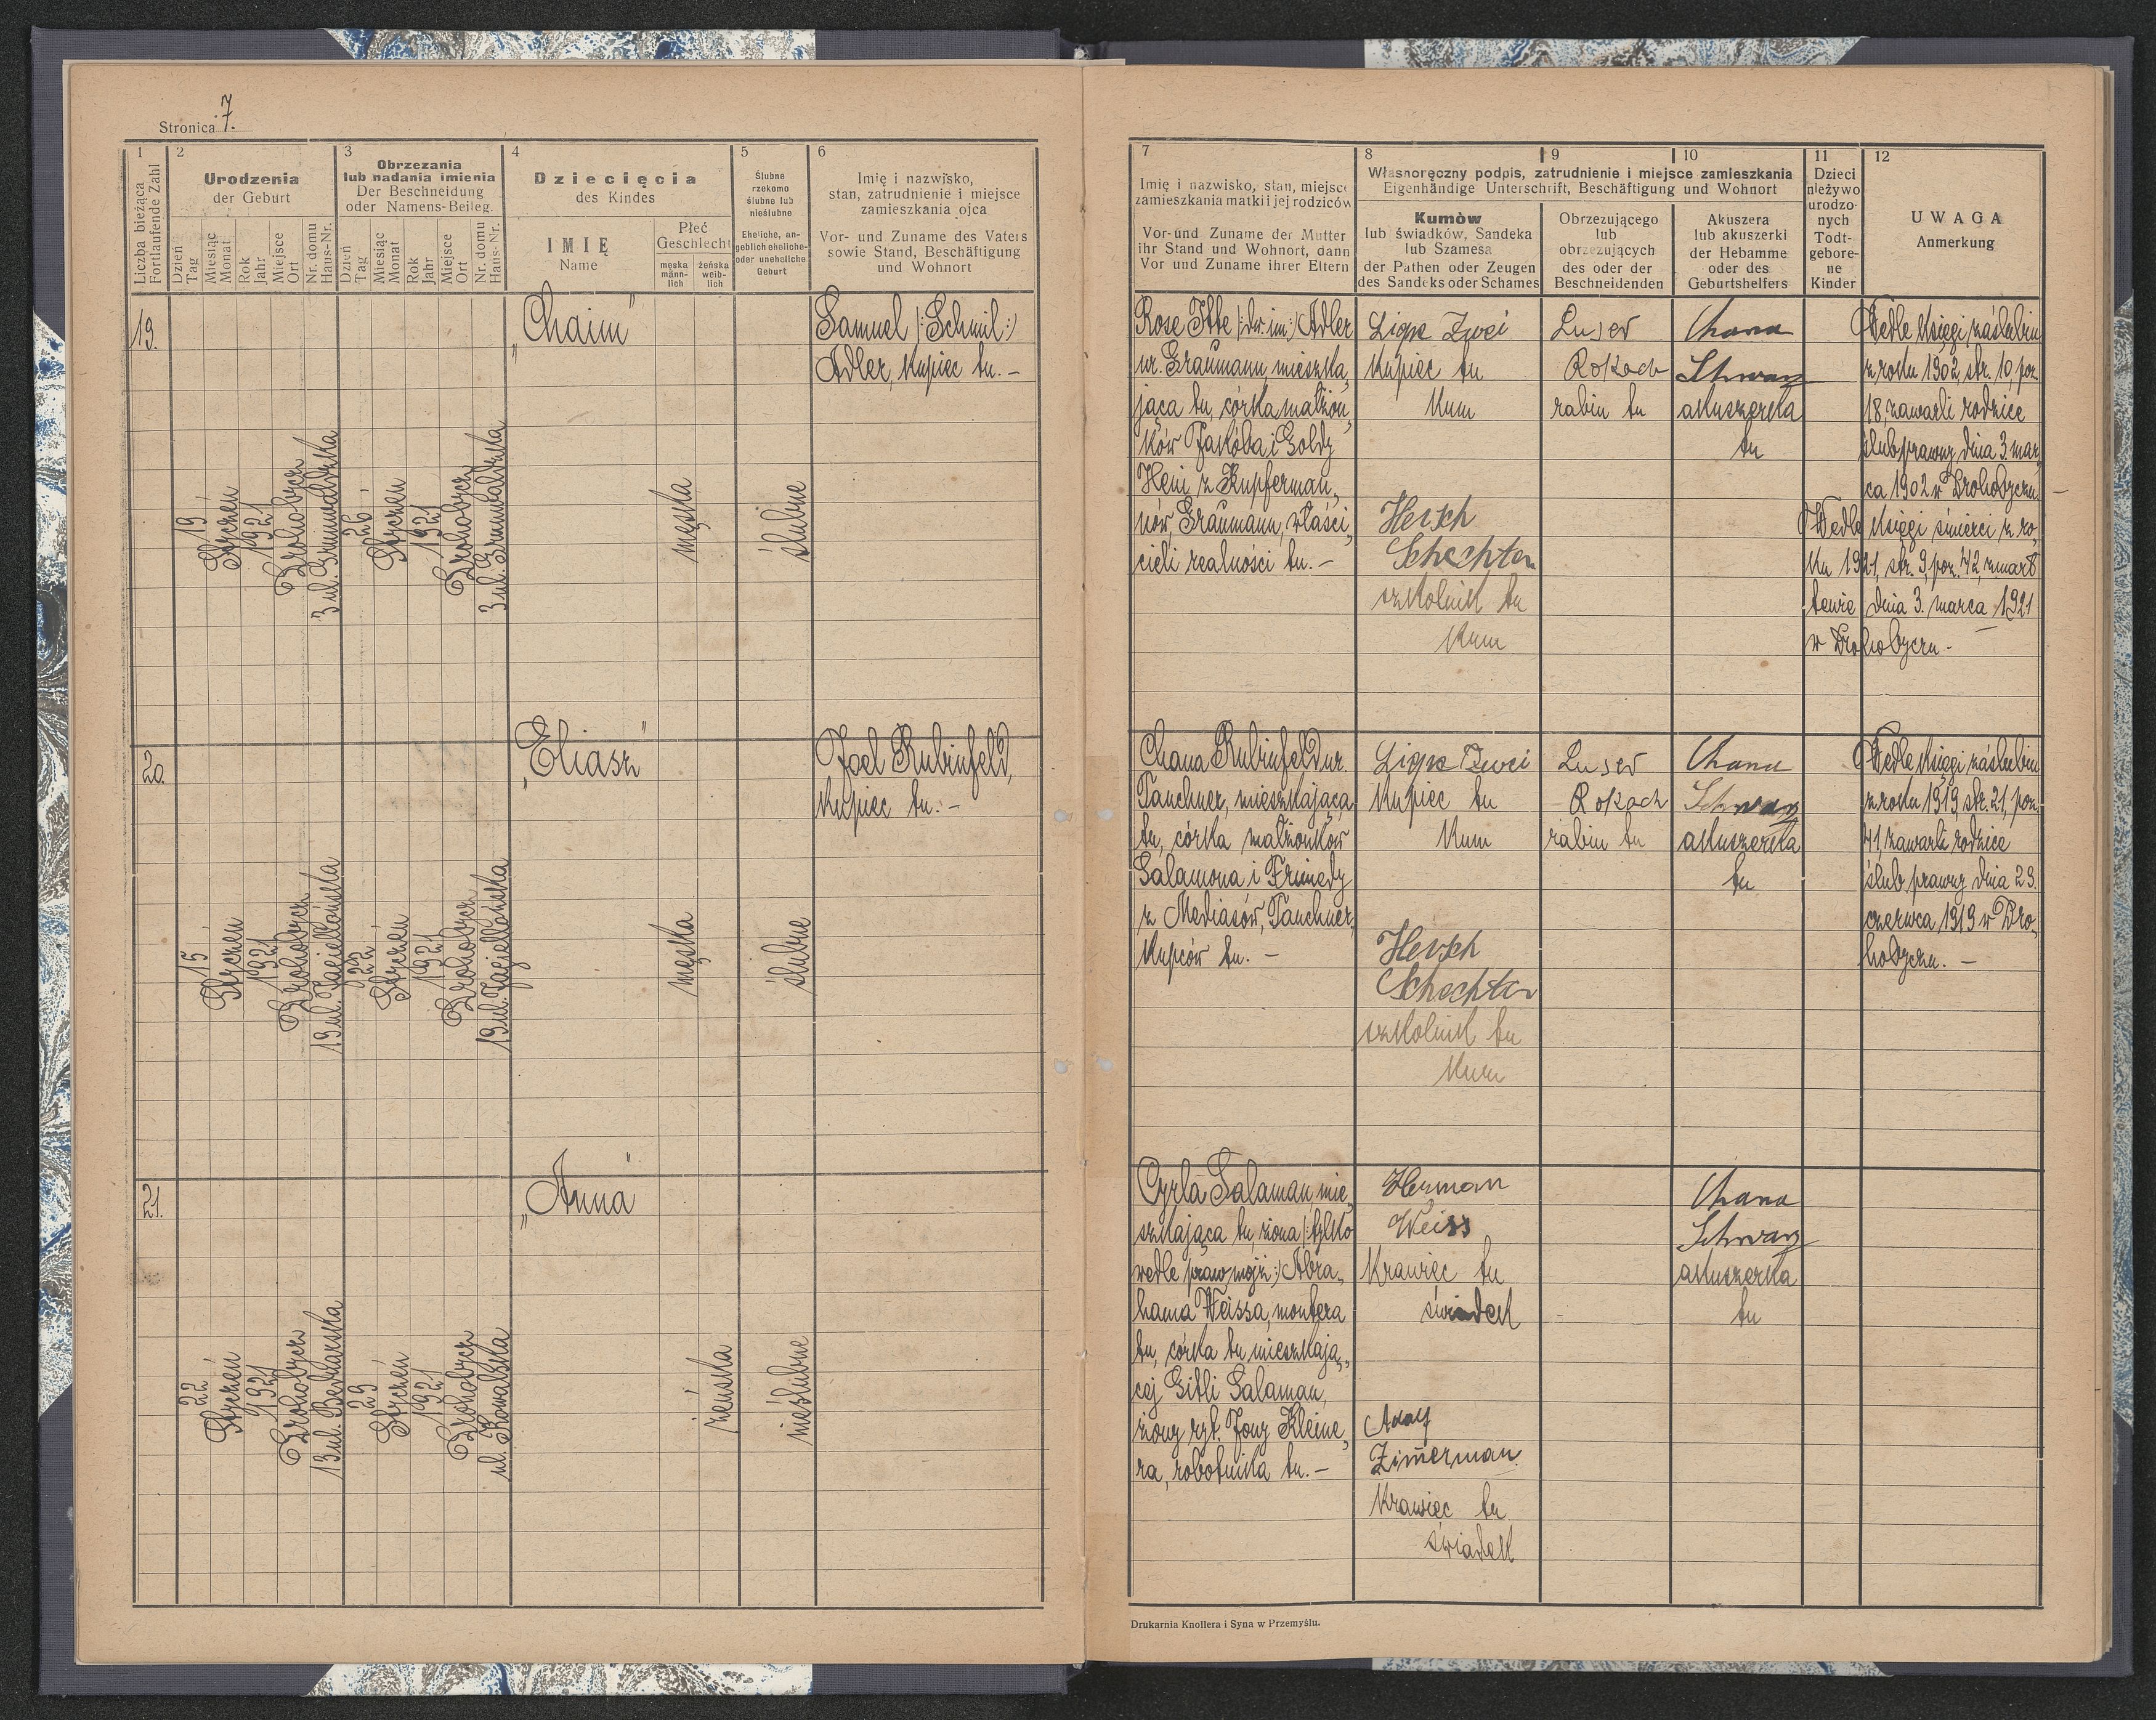 Stronica 7.
1
Liczba bieżąca
Fortlaufende Zahl
2
Urodzenia
der Geburt
Dzień
Tag
Miesiąc
Monat
Rok
Jahr
Miejsce
Ort
Nr. domu
Haus-Nr.
3
Obrzezania
lub nadania imienia
Der Beschneidung
oder Namens-Beileg.
Dzień
Tag
Miesiąc
Monat
Rok
Jahr
Miejsce
Ort
Nr. domu
Haus-Nr.
4
Dziecięcia
des Kindes
IMIĘ
Name
Płeć
Geschlecht
męska
männ-
lich
żeńska
weib-
lich
5
Ślubne
rzekomo
ślubne lub
nieślubne
Eheliche, an-
geblich eheliche-
oder uneheliche
Geburt
6
Imię i nazwisko,
stan, zatrudnienie i miejsce
zamieszkania ojca
Vor- und Zuname des Vaters
sowie Stand, Beschäftigung
und Wohnort
7
Imię i nazwisko, stan, miejsce
zamieszkania matki i jej rodziców
Vor- und Zuname der Mutter
ihr Stand und Wohnort, dann
Vor und Zuname ihrer Eltern
8
9
10
Własnoręczny podpis, zatrudnienie i miejsce zamieszkania
Eigenhändige Unterschrift, Beschäftigung und Wohnort
Kumòw
lub świadków, Sandeka
lub Szamesa
der Pathen oder Zeugen
des Sandeks oder Schames
Obrzezującego
lub
obrzezujących
des oder der
Beschneidenden
Akuszera
lub akuszerki
der Hebamme
oder des
Geburtshelfers
11
Dzieci
nieżywo
urodzo-
nych
Todt-
gebore-
ne
Kinder
12
UWAGA
Anmerkung
19.
19
Styczeń
1921
Drohobycz
3 ul. Grunwaldzka
26
Styczeń
1921
Drohobycz
3 ul. Grunwaldzka
„Chaim"
męska
ślubne
Samuel /: Schmil :/
Adler, kupiec tu. –
Rose Itte /: dw. im :/ Adler
ur. Graumann, mieszka„
jąca tu, córka małżon„
ków Jakóba i Goldy
Heni z Kupferman„
nów, Graumann, właści„
cieli realności tu. –
Lipe Zwei
kupiec tu
kum
Hersch
Schechter
szkolnik tu
kum
Luser
Rokach
rabin tu
Chana
Schwarz
akuszerka
tu
Wedle księgi zaślubin
z roku 1902, str. 10, poz.
18, zawarli rodzice
ślub prawny dnia 3. mar„
ca 1902 w Drohobyczu. –
Wedle księgi śmierci z ro„
ku 1921, str. 9, poz. 42, zmarł
tenże dnia 3. marca 1921
w Drohobyczu. –
20.
15
Styczeń
1921
Drohobycz
19 ul. Jagiellońska
22
Styczeń
1921
Drohobycz
19 ul. Jagiellońska
„Eliasz"
męska
ślubne
Joel Rubinfeld,
kupiec tu. –
Chana Rubinfeld ur.
Tanchner, mieszkająca
tu, córka małżonków
Salamona i Frimedy
z Mediasów, Tanchner,
kupców tu. –
Lipe Zwei
kupiec tu
kum
Hersch
Schechter
szkolnik tu
kum
Luser
Rokach
rabin tu
Chana
Schwarz
akuszerka
tu
Wedle księgi zaślubin
z roku 1919, str. 21, poz.
41, zawarli rodzice
ślub prawny dnia 29.
czerwca 1919 w Dro„
hobyczu. –
21.
22
Styczeń
1921
Drohobycz
13 ul. Bednarska
29
Styczeń
1921
Drohobycz
ul. Kowalska
„Anna"
żeńska
nieślubne
Cyrla Salaman, mie„
szkająca tu, żona /: tylko
wedle praw mojż :/ Abra„
hama Weissa, montera
tu, córka tu mieszkają„
cej Gitli Salaman,
żony ryt. Jony Kleine„
ra, robotnika tu. –
Herman
Weiss
krawiec tu
świadek
Adolf
Zim̄erman
krawiec tu
świadek
Chana
Schwarz
akuszerka
tu
Drukarnia Knollera i Syna w Przemyślu.